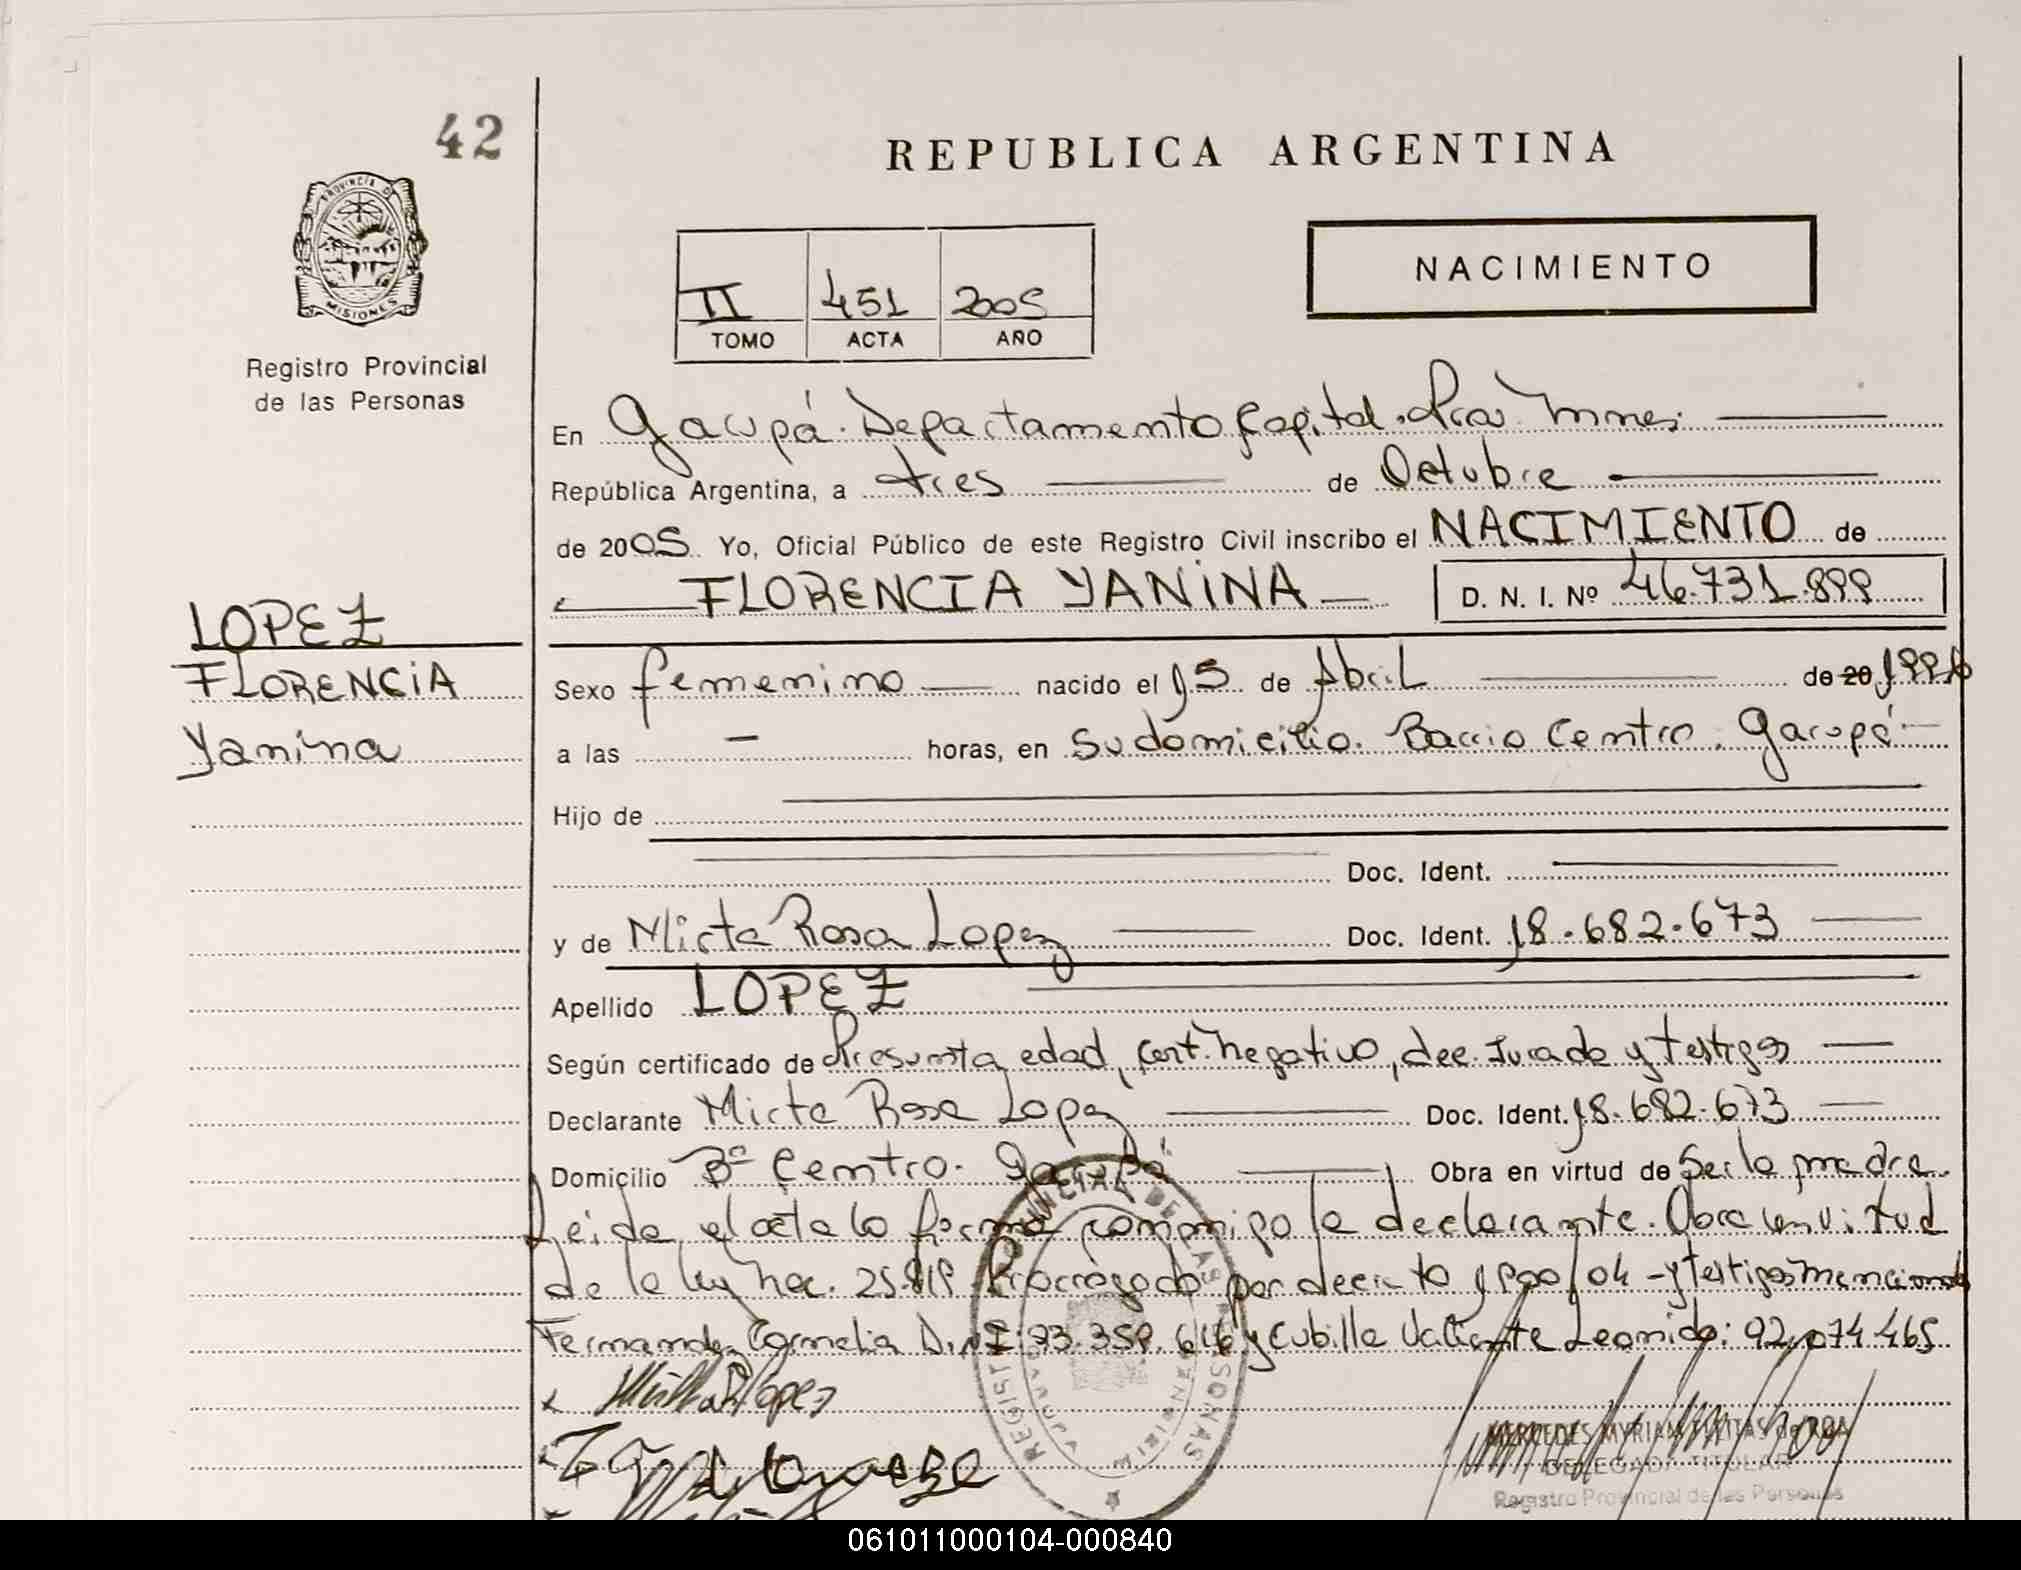 42
REPUBLICA ARGENTINA
PROVINCIA D
MISIONES
NACIMIENTO
II 451 2005
TOMO ACTA AÑO
Registro Provincial
de las Personas
En Garupá. Departamento Capital. Pcia. Mnes.
República Argentina, a tres de Octubre
de 2005 Yo, Oficial Público de este Registro Civil inscribo el NACIMIENTO de
FLORENCIA YANINA D. N. I. Nº 46.731.899
LOPEZ
FLORENCIA
Yanina
Sexo femenino nacido el 15 de Abril de 20 1996
a las - horas, en Su domicilio. Barrio Centro. Garupá
Hijo de
Doc. Ident.
y de Mirta Rosa Lopez Doc. Ident. 18.682.673
Apellido LOPEZ
Según certificado de Presunta edad, cert. negativo, dec. Jurada y testigos
Declarante Mirta Rosa Lopez Doc. Ident. 18.682.673
Domicilio Bº Centro. Garupá Obra en virtud de Ser la madre
Leida el acta la firma conmigo la declarante. Obra en virtud
de la ley nac. 25.819 Prorrogado por decreto 1900/04 - y testigos
Fernandez Cornelia D.N.I: 93.359.616 y Cubilla Valiente Leonida: 92.074.465
Mirta R Lopez
MERCEDES MYRIAM de ROA
DELEGADA TITULAR
Registro Provincial de las Personas
061011000104-000840